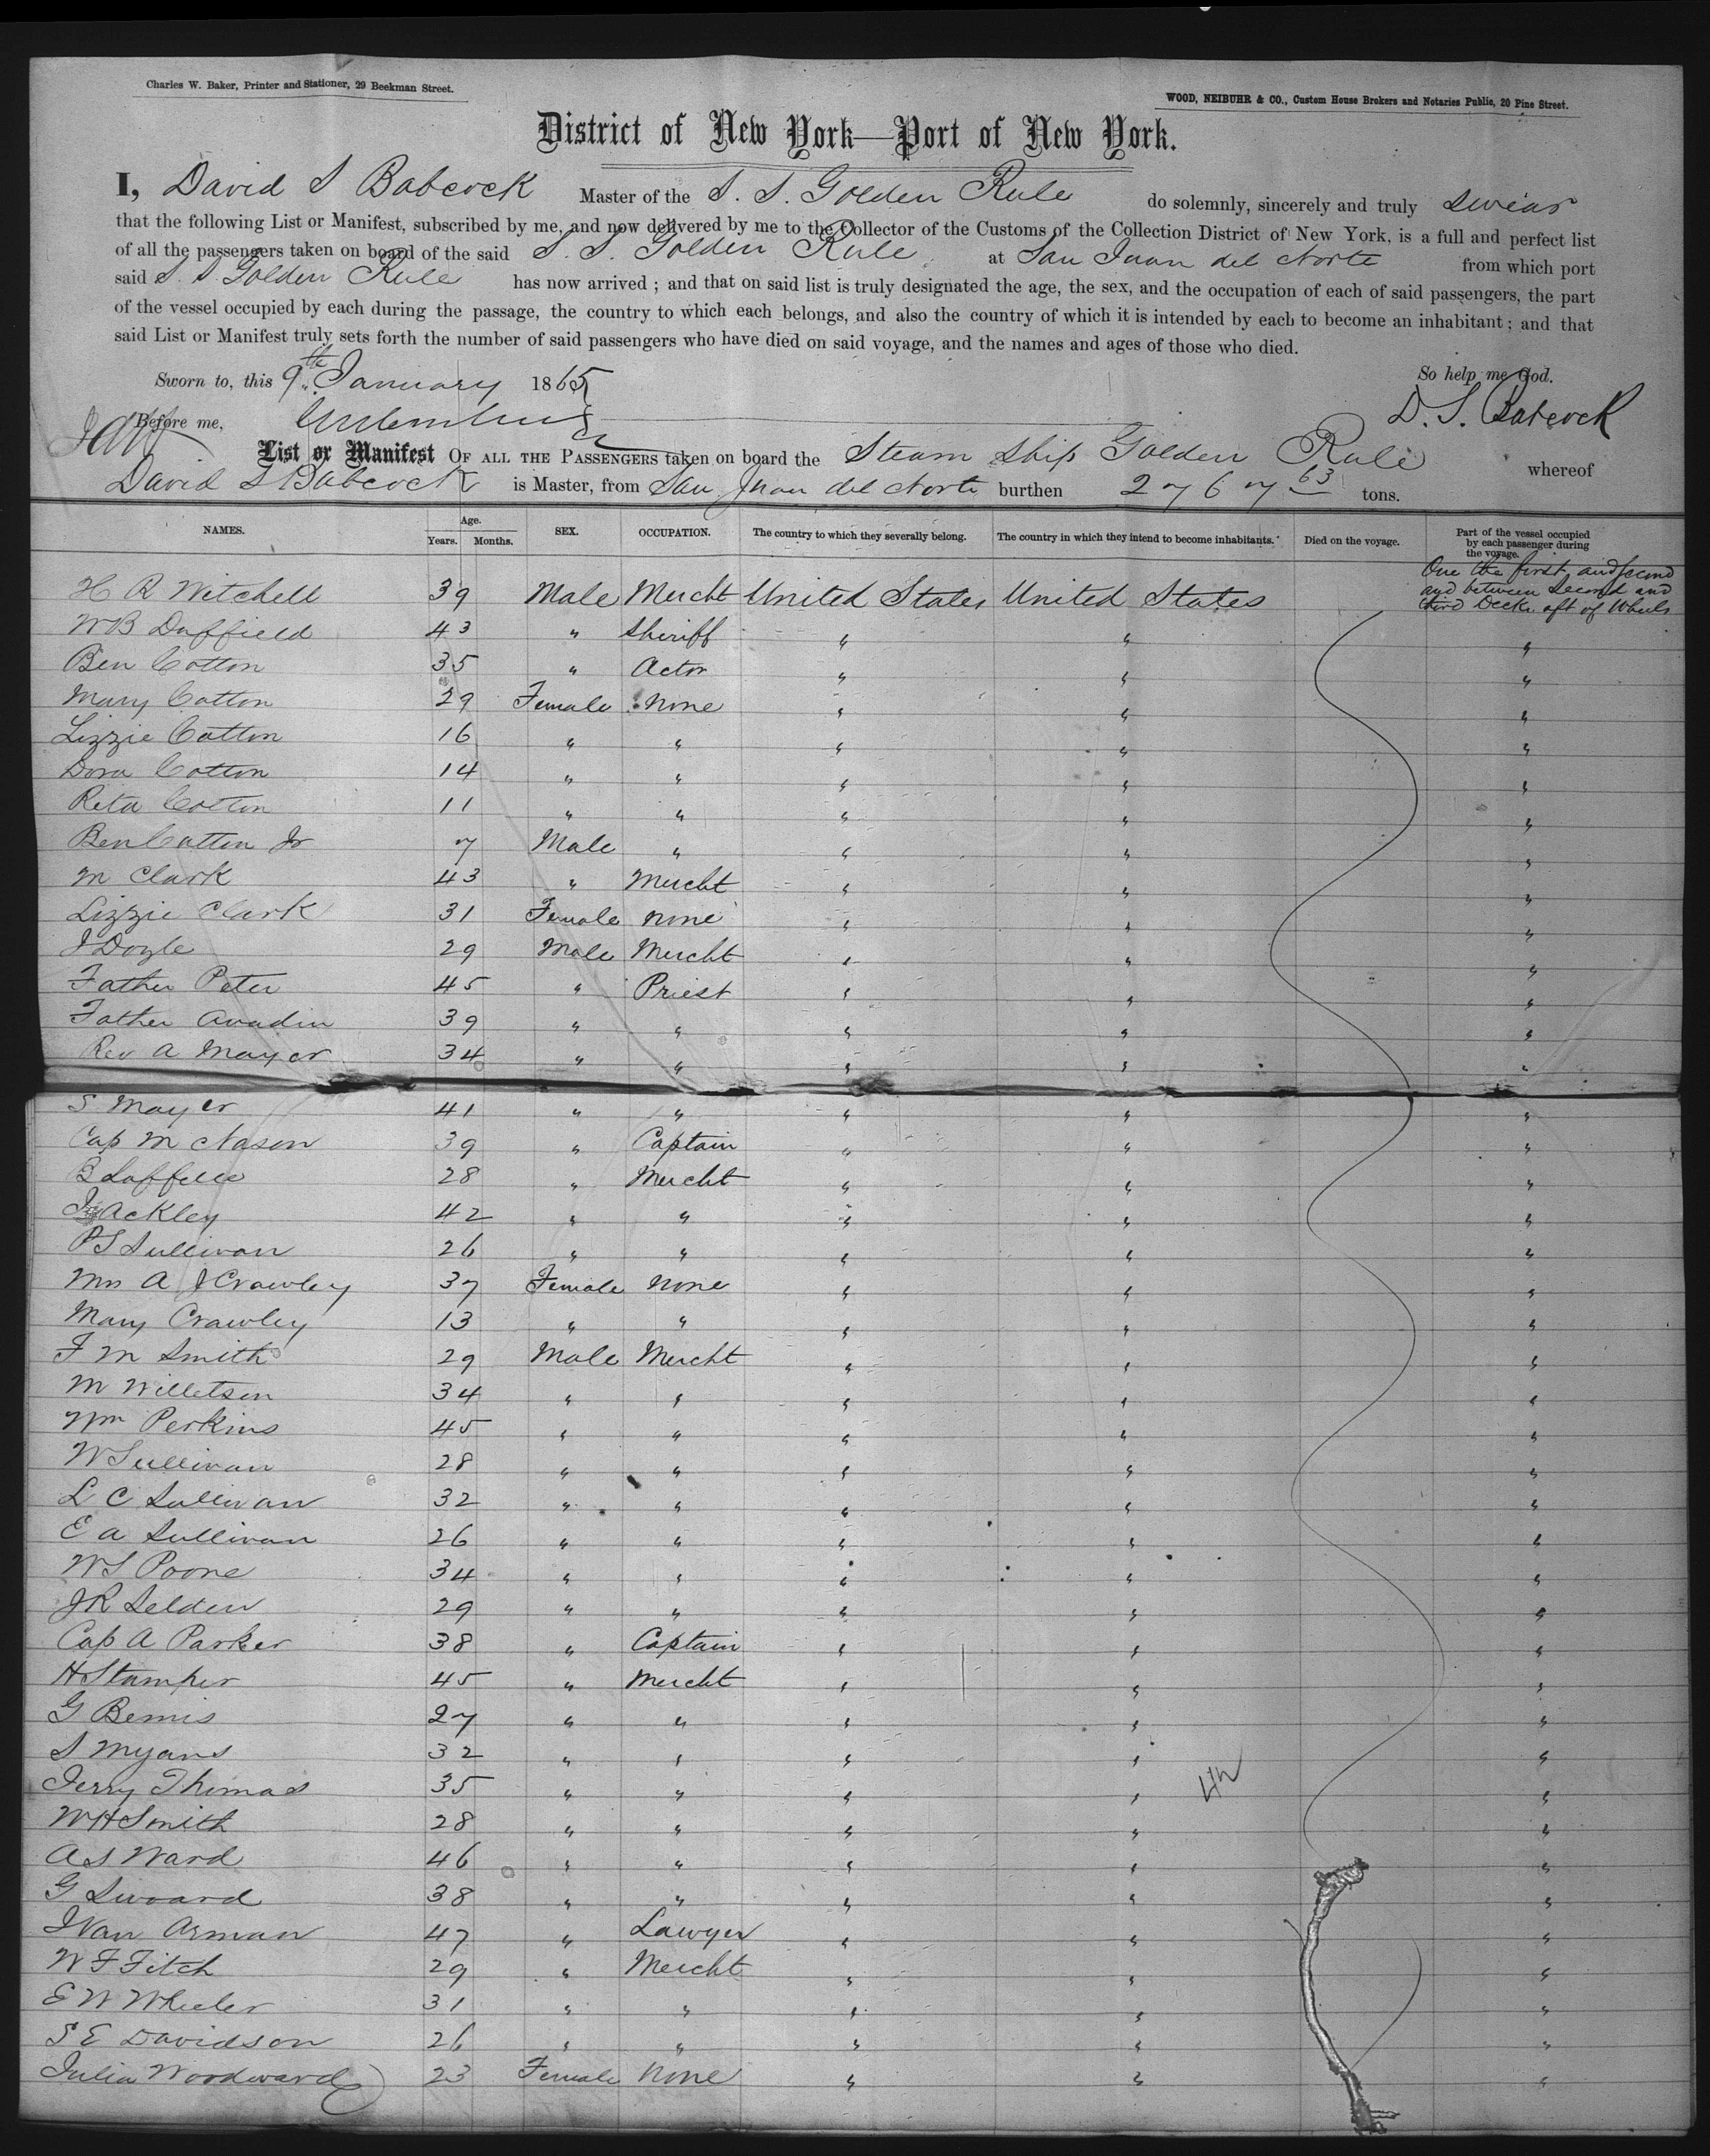 Charles W. Baker, Printer and Stationer, 29 Beekman Street.
WOOD, NEIBUHR & CO., Custom House Brokers and Notaries Public, 20 Pine Street.
District of New York—Port of New York.
I, David S Babcock Master of the S. S. Golden Rule do solemnly, sincerely and truly swear
that the following List or Manifest, subscribed by me, and now delivered by me to the Collector of the Customs of the Collection District of New York, is a full and perfect list
of all the passengers taken on board of the said S. S. Golden Rule at San Juan del Norte from which port
said S. S Golden Rule has now arrived ; and that on said list is truly designated the age, the sex, and the occupation of each of said passengers, the part
of the vessel occupied by each during the passage, the country to which each belongs, and also the country of which it is intended by each to become an inhabitant ; and that
said List or Manifest truly sets forth the number of said passengers who have died on said voyage, and the names and ages of those who died.
Sworn to, this 9th January 1865 So help me God.
Before me, D. S. Babcock
List or Manifest OF ALL THE PASSENGERS taken on board the Steam Ship Golden Rule whereof
David S Babcock is Master, from San Juan del Norte burthen 2767 63 tons.
NAMES. Age. Years. Months. SEX. OCCUPATION. The country to which they severally belong. The country in which they intend to become inhabitants. Died on the voyage. Part of the vessel occupied by each passenger during the voyage.
One the first, and second and between Second and third Decks aft of Wheels
H R Witchell 39 Male Mercht United States United States
W B Duffield 43 " Sheriff " " "
Ben Cotton 35 " Actor " " "
Mary Cotton 29 Female None " " "
Lizzie Cotton 16 " " " " "
Dora Cotton 14 " " " " "
Reta Cotton 11 " " " " "
Ben Cotton Jr 7 Male " " " "
M Clark 43 " Mercht " " "
Lizzie Clark 31 Female None " " "
J Doyle 29 Male Mercht " " "
Father Peter 45 " Priest " " "
Father Avadin 39 " " " " "
Rev A Mayer 34 " " " " "
S Mayer 41 " " " " "
Cap M Nason 39 " Captain " " "
B 28 " Mercht " " "
Ackley 42 " " " " "
P S Sullivan 26 " " " " "
Mrs A J Crawley 37 Female None " " "
Mary Crawley 13 " " " " "
F M Smith 29 Male Mercht " " "
M Willetsen 34 " " " " "
Wm Perkins 45 " " " " "
W Sullivan 28 " " " " "
L C Sullivan 32 " " " " "
E A Sullivan 26 " " " " "
W S Poone 34 " " " " "
J R Selden 29 " " " " "
Cap A Parker 38 " Captain " " "
H Stamper 45 " Mercht " " "
G Bemis 27 " " " " "
S Myans 32 " " " " "
Jerry Thomas 35 " " " " "
W H Smith 28 " " " " "
A S Ward 46 " " " " "
G 38 " " " " "
J Van Arman 47 " Lawyer " " "
W F Fitch 29 " Mercht " " "
E W Wheeler 31 " " " " "
S E Davidson 26 " " " " "
Julia Woodward 23 Female None " " "